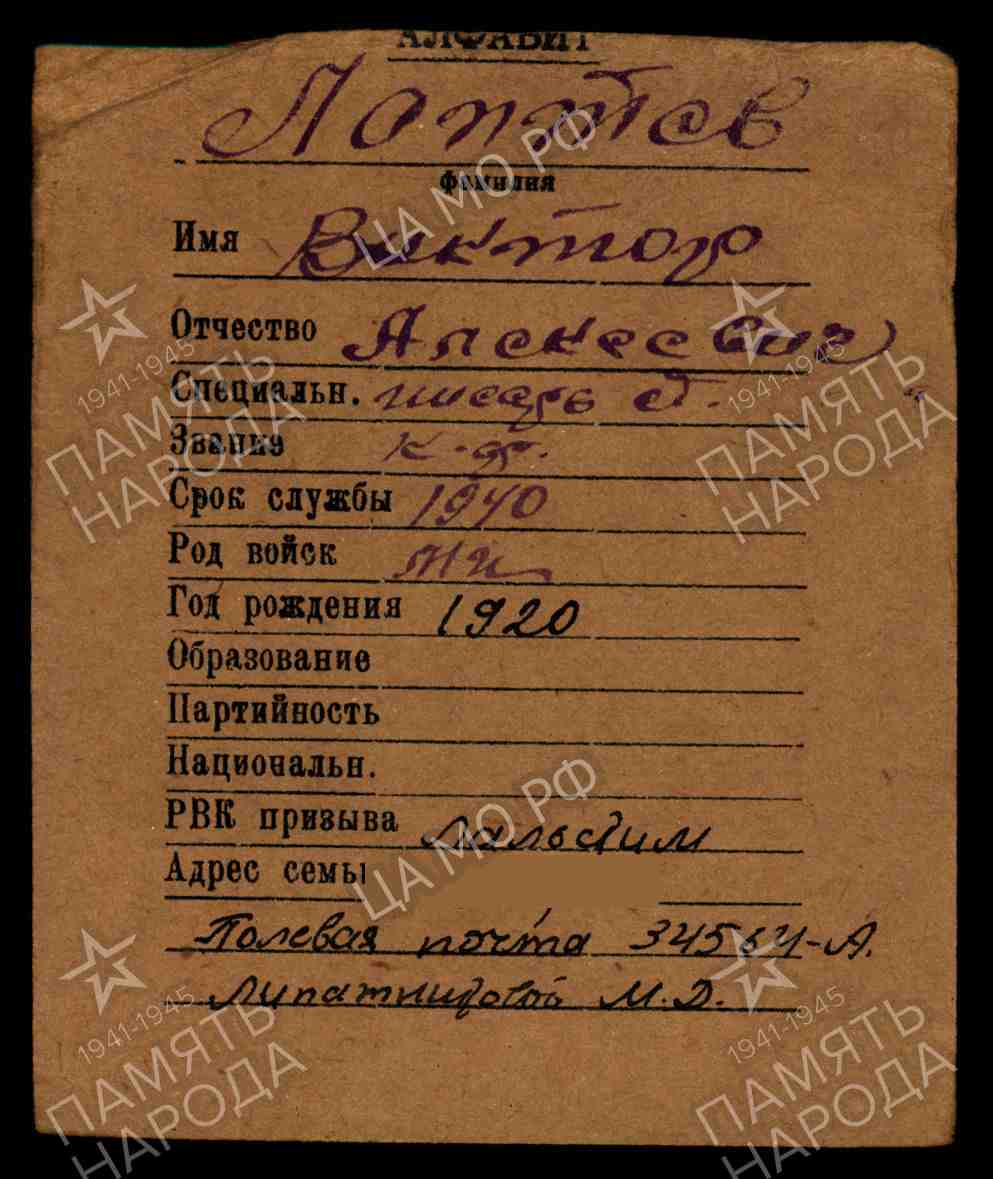 АЛФАВИТ
Лаптев
фамилия
Имя Виктор
Отчество Алексеевич
Специальн. писарь ст.
Звание к-р.
Срок службы 1940
Род войск
Год рождения 1920
Образование
Партийность
Национальн.
РВК призыва
Адрес семьи
Полевая почта 34564-А.
М.Д.
ЦА МО РФ
1941-1945
ПАМЯТЬ
НАРОДА
1941-1945
ПАМЯТЬ
НАРОДА
ЦА МО РФ
1941-1945
ПАМЯТЬ
НАРОДА
1941-1945
ПАМЯТЬ
НАРОДА